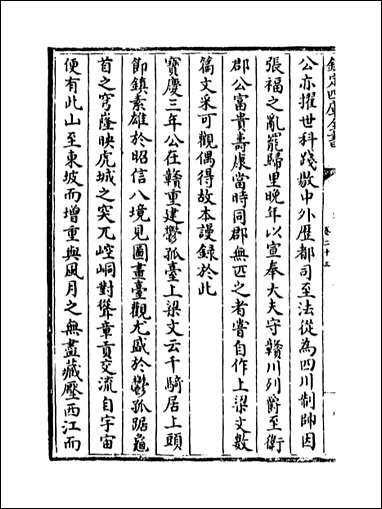 欽定四庫全書
卷二十五
公亦擢世科踐敭中外歴都司至法從為四川制帥因
張福之亂罷歸里晚年以宣奉大夫守贛川列爵至衛
郡公富貴壽康當時同郡無匹之者嘗自作上梁文數
篇文采可觀偶得故本謾録於此
寳慶三年公在贛重建鬱孤臺上梁文云千騎居上頭
節鎮素雄於昭信八境見圖畫臺觀尤盛於鬱孤踞龜
首之穹窿映虎城之突兀崆峒對聳章貢交流自宇宙
便有此山至東坡而增重與風月之無盡藏壓西江而